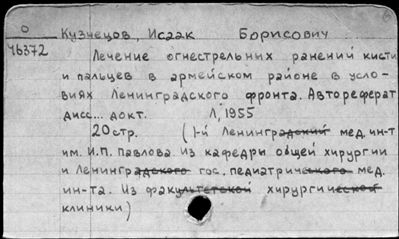 О Кузнецов, Исаак Борисович
Ч6372
Лечение огнестрельных ранений кисти
и пальцев в армейском районе в усло-
виях Ленинградского фронта. Автореферат
дисс... докт. Л, 1955
20стр. (1-й Ленинградский мед. ин-т
им. И.П. Павлова. Из кафедры общей хирургии
и Ленинградского гос. педиатрического мед.
ин-та. Из факультетской хирургической
клиники)